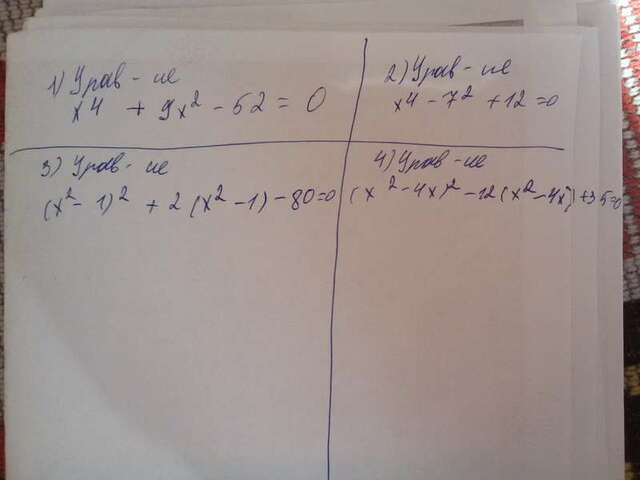 1) Урав-ие
x⁴ + 9x² - 52 = 0
2) Урав-ие
x⁴ - 7² + 12 = 0
3) Урав-ие
(x² - 1)² + 2(x² - 1) - 80 = 0
4) Урав-ие
(x² - 4x)² - 12(x² - 4x) + 35 = 0